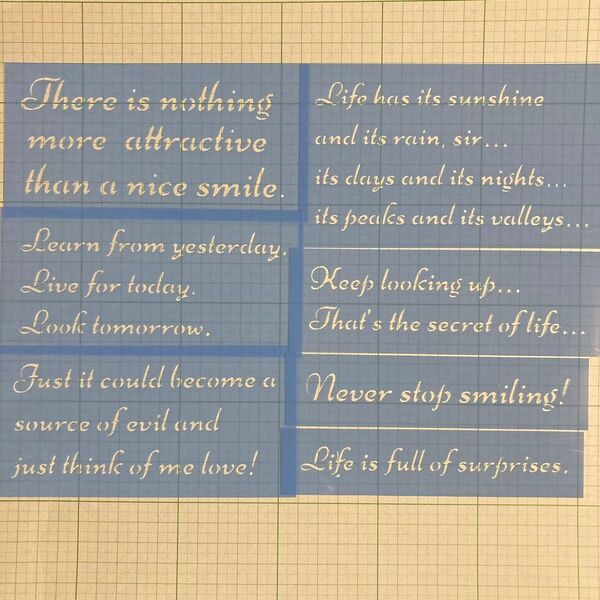 There is nothing
more attractive
than a nice smile.
Learn from yesterday.
Live for today.
Look tomorrow.
Just it could become a
source of evil and
just think of me love!
Life has its sunshine
and its rain, sir...
its days and its nights...
its peaks and its valleys...
Keep looking up...
That's the secret of life...
Never stop smiling!
Life is full of surprises.